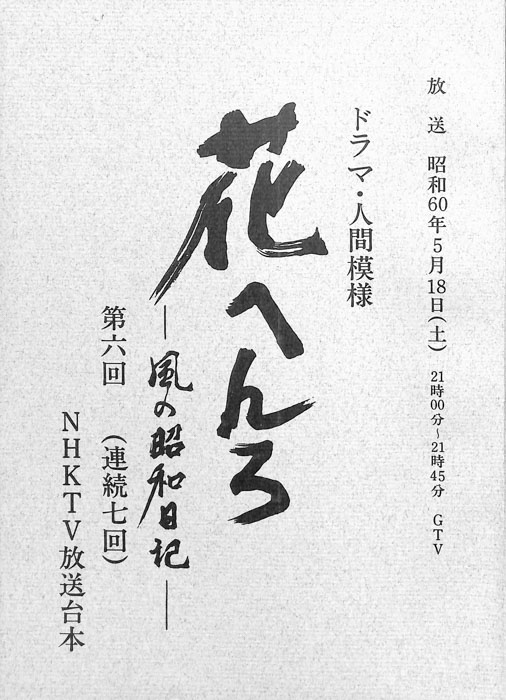 放送 昭和60年5月18日(土) 21時00分～21時45分 GTV
ドラマ・人間模様
花へんろ
―風の昭和日記―
第六回 (連続七回)
NHKTV放送台本